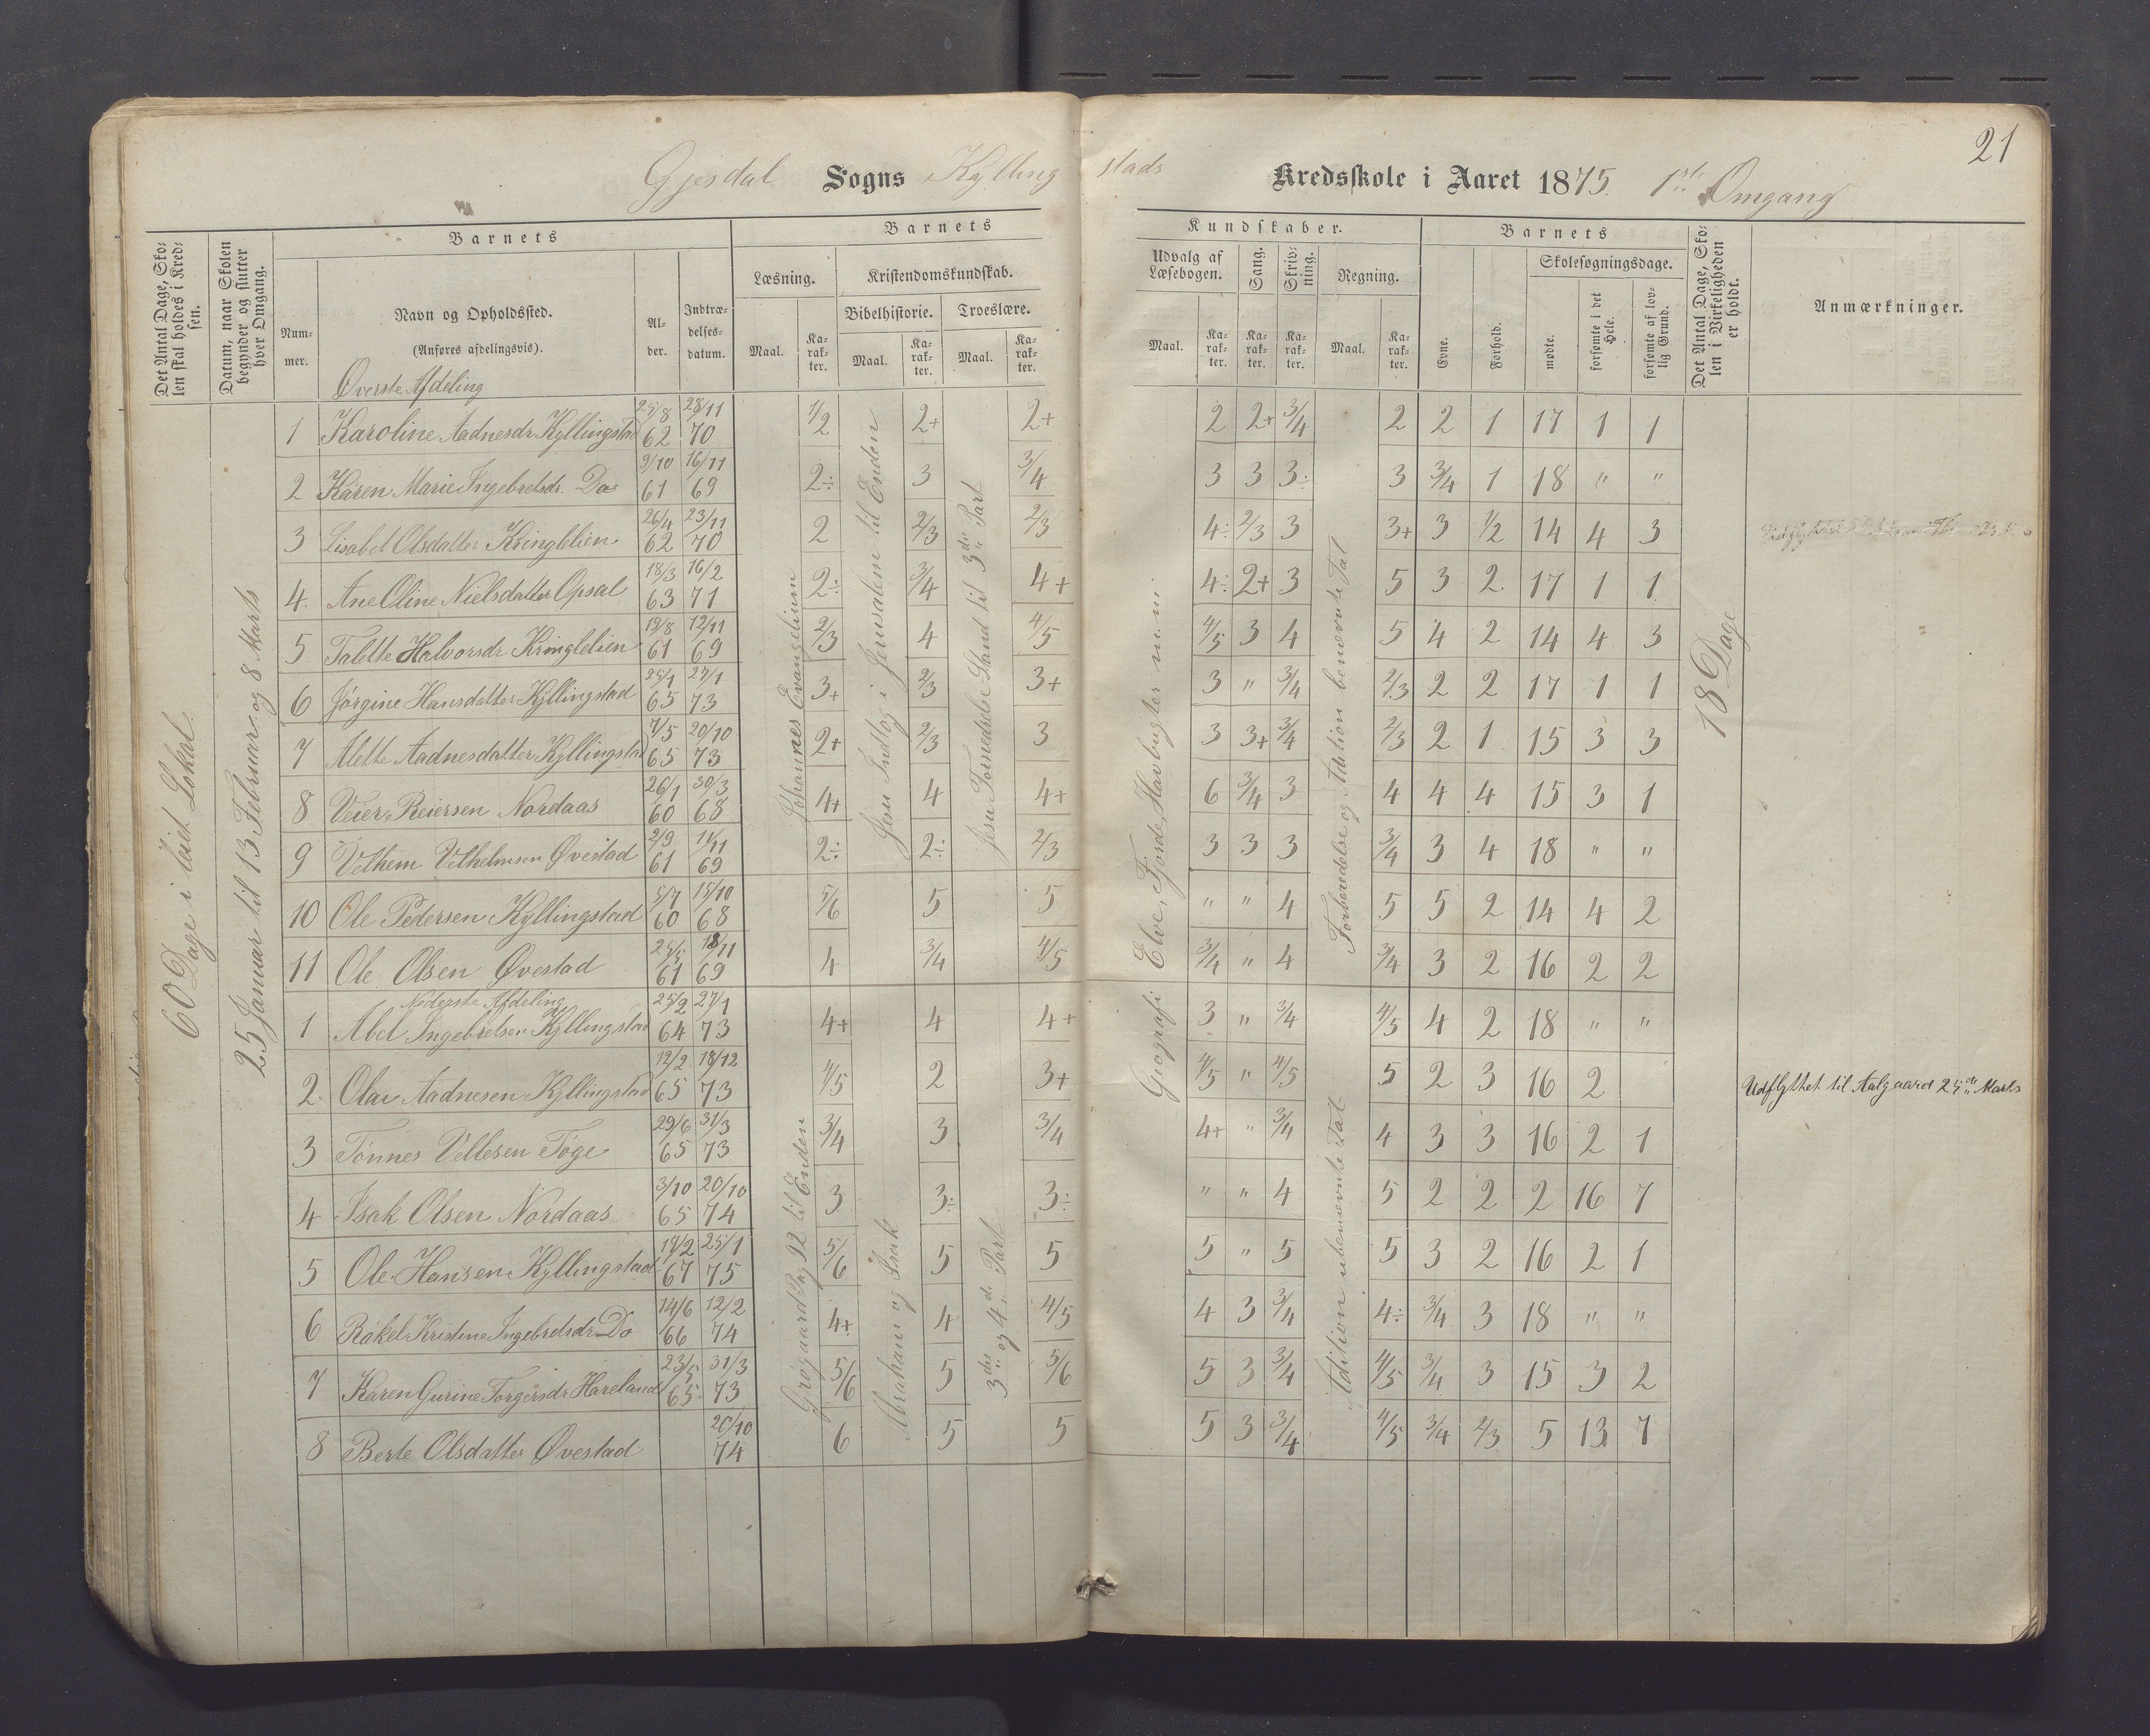 21
Gjesdal Sogns Kyllingstads Kredsskole i Aaret 1875. 1ste Omgang
Det Antal Dage, Skolen skal holdes i Kredsen.
Datum, naar Skolen begynder og slutter hver Omgang.
Barnets
Nummer.
Navn og Opholdssted.
(Anføres afdelingsvis).
Alder.
Indtrædelsesdatum.
Barnets Kundskaber.
Læsning.
Maal.
Karakter.
Kristendomskundskab.
Bibelhistorie.
Maal.
Karakter.
Troeslære.
Maal.
Karakter.
Udvalg af Læsebogen.
Maal.
Karakter.
Sang.
Karakter.
Skrivning.
Karakter.
Regning.
Maal.
Karakter.
Barnets
Evne.
Forhold.
Skolesøgningsdage.
mødte.
forsømte i det Hele.
forsømte af lovlig Grund.
Det Antal Dage, Skolen i Virkeligheden er holdt.
Anmærkninger.
60 Dage i leiet Lokal.
25 Januar til 13 Februar og 8 Marts
Johannes Evangelium
Jesu Indtog i Jerusalem til Enden
Jesu Fornedrelse Stand til 3die Part
Geografi Elve, Fjorde, Havbugter
Forberedelse og Adition benævnte Tal
18 Dage
Øverste Afdeling
1 Karoline Aadnesdr Kyllingstad 25/8 62 28/11 70 1/2 2+ 2+ 2 2+ 3/4 2 2 1 17 1 1
2 Karen Marie Ingebretsdr. Do 9/10 61 16/11 69 2÷ 3 3/4 3 3 3÷ 3 3/4 1 18 " "
3 Lisabet Olsdatter Kringlelien 26/4 62 23/11 70 2 2/3 2/3 4÷ 2/3 3 3+ 3 1/2 14 4 3
4. Ane Oline Nielsdatter Opsal 18/3 63 16/2 71 2÷ 3/4 4+ 4÷ 2+ 3 5 3 2 17 1 1
5 Talette Halvorsdr Kringlelien 19/8 61 12/11 69 2/3 4 4/5 4/5 3 4 5 4 2 14 4 3
6 Jørgine Hansdatter Kyllingstad 25/1 65 27/1 73 3+ 2/3 3+ 3 " 3/4 2/3 2 2 17 1 1
7 Alette Aadnesdatter Kyllingstad 7/5 65 20/10 73 2+ 2/3 3 3 3+ 3/4 2/3 2 1 15 3 3
8 Veier Reiersen Nordaas 26/1 60 30/3 68 4+ 4 4+ 6 3/4 3 4 4 4 15 3 1
9 Velhem Velhelmsen Øvestad 2/9 61 11/11 69 2÷ 2÷ 2/3 3 3 3 3/4 3 4 18 " "
10 Ole Pedersen Kyllingstad 5/7 60 15/10 68 5/6 5 5 " " 4 5 5 2 14 4 2
11 Ole Olsen Øvestad 25/5 61 18/11 69 4 3/4 4/5 3/4 " 4 3/4 3 2 16 2 2
Nederste Afdeling
Grøgaard Pag 92 til Enden
Abraham og Isak
3die og 4de Part
Adition ubenævnte Tal
1 Abel Ingebretsen Kyllingstad 25/2 64 27/1 73 4+ 4 4+ 3 " 3/4 4/5 4 2 18 " "
2. Olai Aadnesen Kyllingstad 12/2 65 18/12 73 4/5 2 3+ 4/5 " 4/5 5 2 3 16 2 Udflyttet til Aalgaard 25de Marts
3 Tønnes Vellesen Føge 29/6 65 31/3 73 3/4 3 3/4 4+ " 3/4 4 3 3 16 2 1
4 Isak Olsen Nordaas 3/10 65 20/10 74 3 3÷ 3÷ " " 4 5 2 2 2 16 7
5 Ole Hansen Kyllingstad 19/2 67 25/1 75 5/6 5 5 5 " 5 5 3 2 16 2 1
6 Rakel Kristine Ingebretsdr Do 14/6 66 12/2 74 4+ 4 4/5 4 3 3/4 4÷ 3/4 3 18 " "
7 Karen Gurine Torgersdr Haveland 23/5 65 31/3 73 5/6 5 5/6 5 3 3/4 4/5 3/4 3 15 3 2
8 Berte Olsdatter Øvestad 20/10 74 6 5 5 5 3 3/4 4/5 3/4 2/3 5 13 7